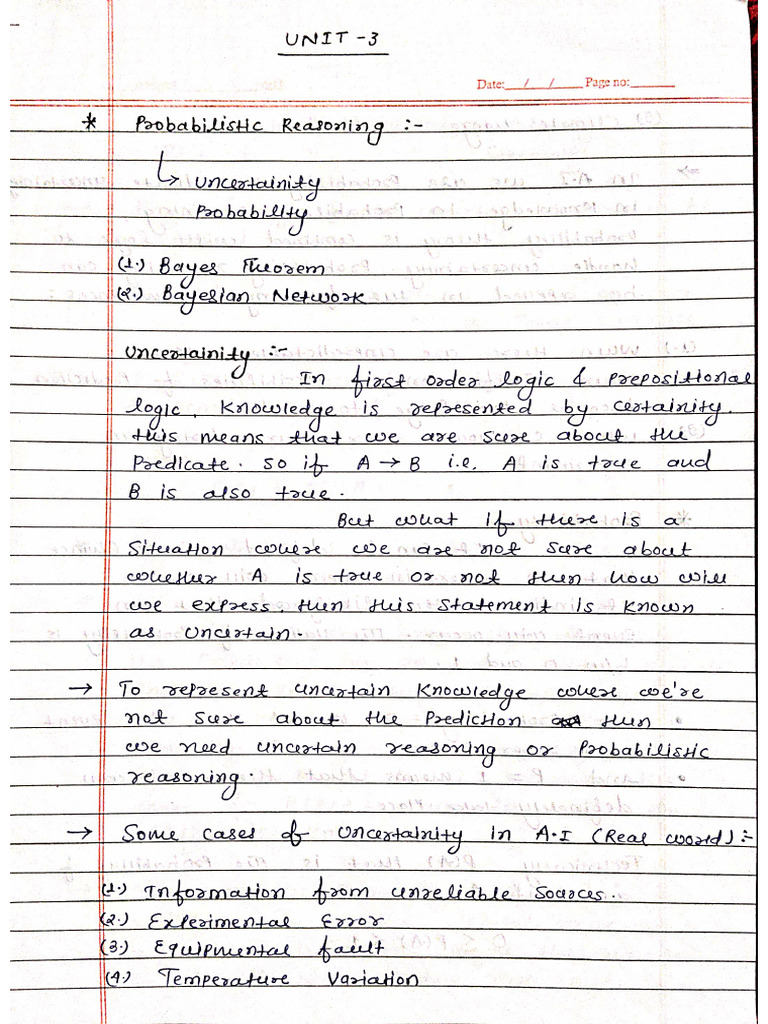 UNIT - 3
Date: __/__/____ Page no: ______
* Probabilistic Reasoning :-
↳ Uncertainity
Probability
(1.) Bayes Theorem
(2.) Bayesian Network
Uncertainity :-
In first order logic & prepositional
logic, Knowledge is represented by certainity.
this means that we are sure about the
Predicate. so if A → B i.e. A is true and
B is also true.
But what if there is a
Situation where we are not sure about
whether A is true or not then how will
we express then this statement is known
as uncertain.
→ To represent uncertain Knowledge where we're
not sure about the Prediction then
we need uncertain reasoning or Probabilistic
reasoning.
→ Some cases of Uncertainity in A.I (Real world) :-
(1.) Information from unreliable Sources.
(2.) Experimental Error
(3.) Equipmental fault
(4.) Temperature Variation